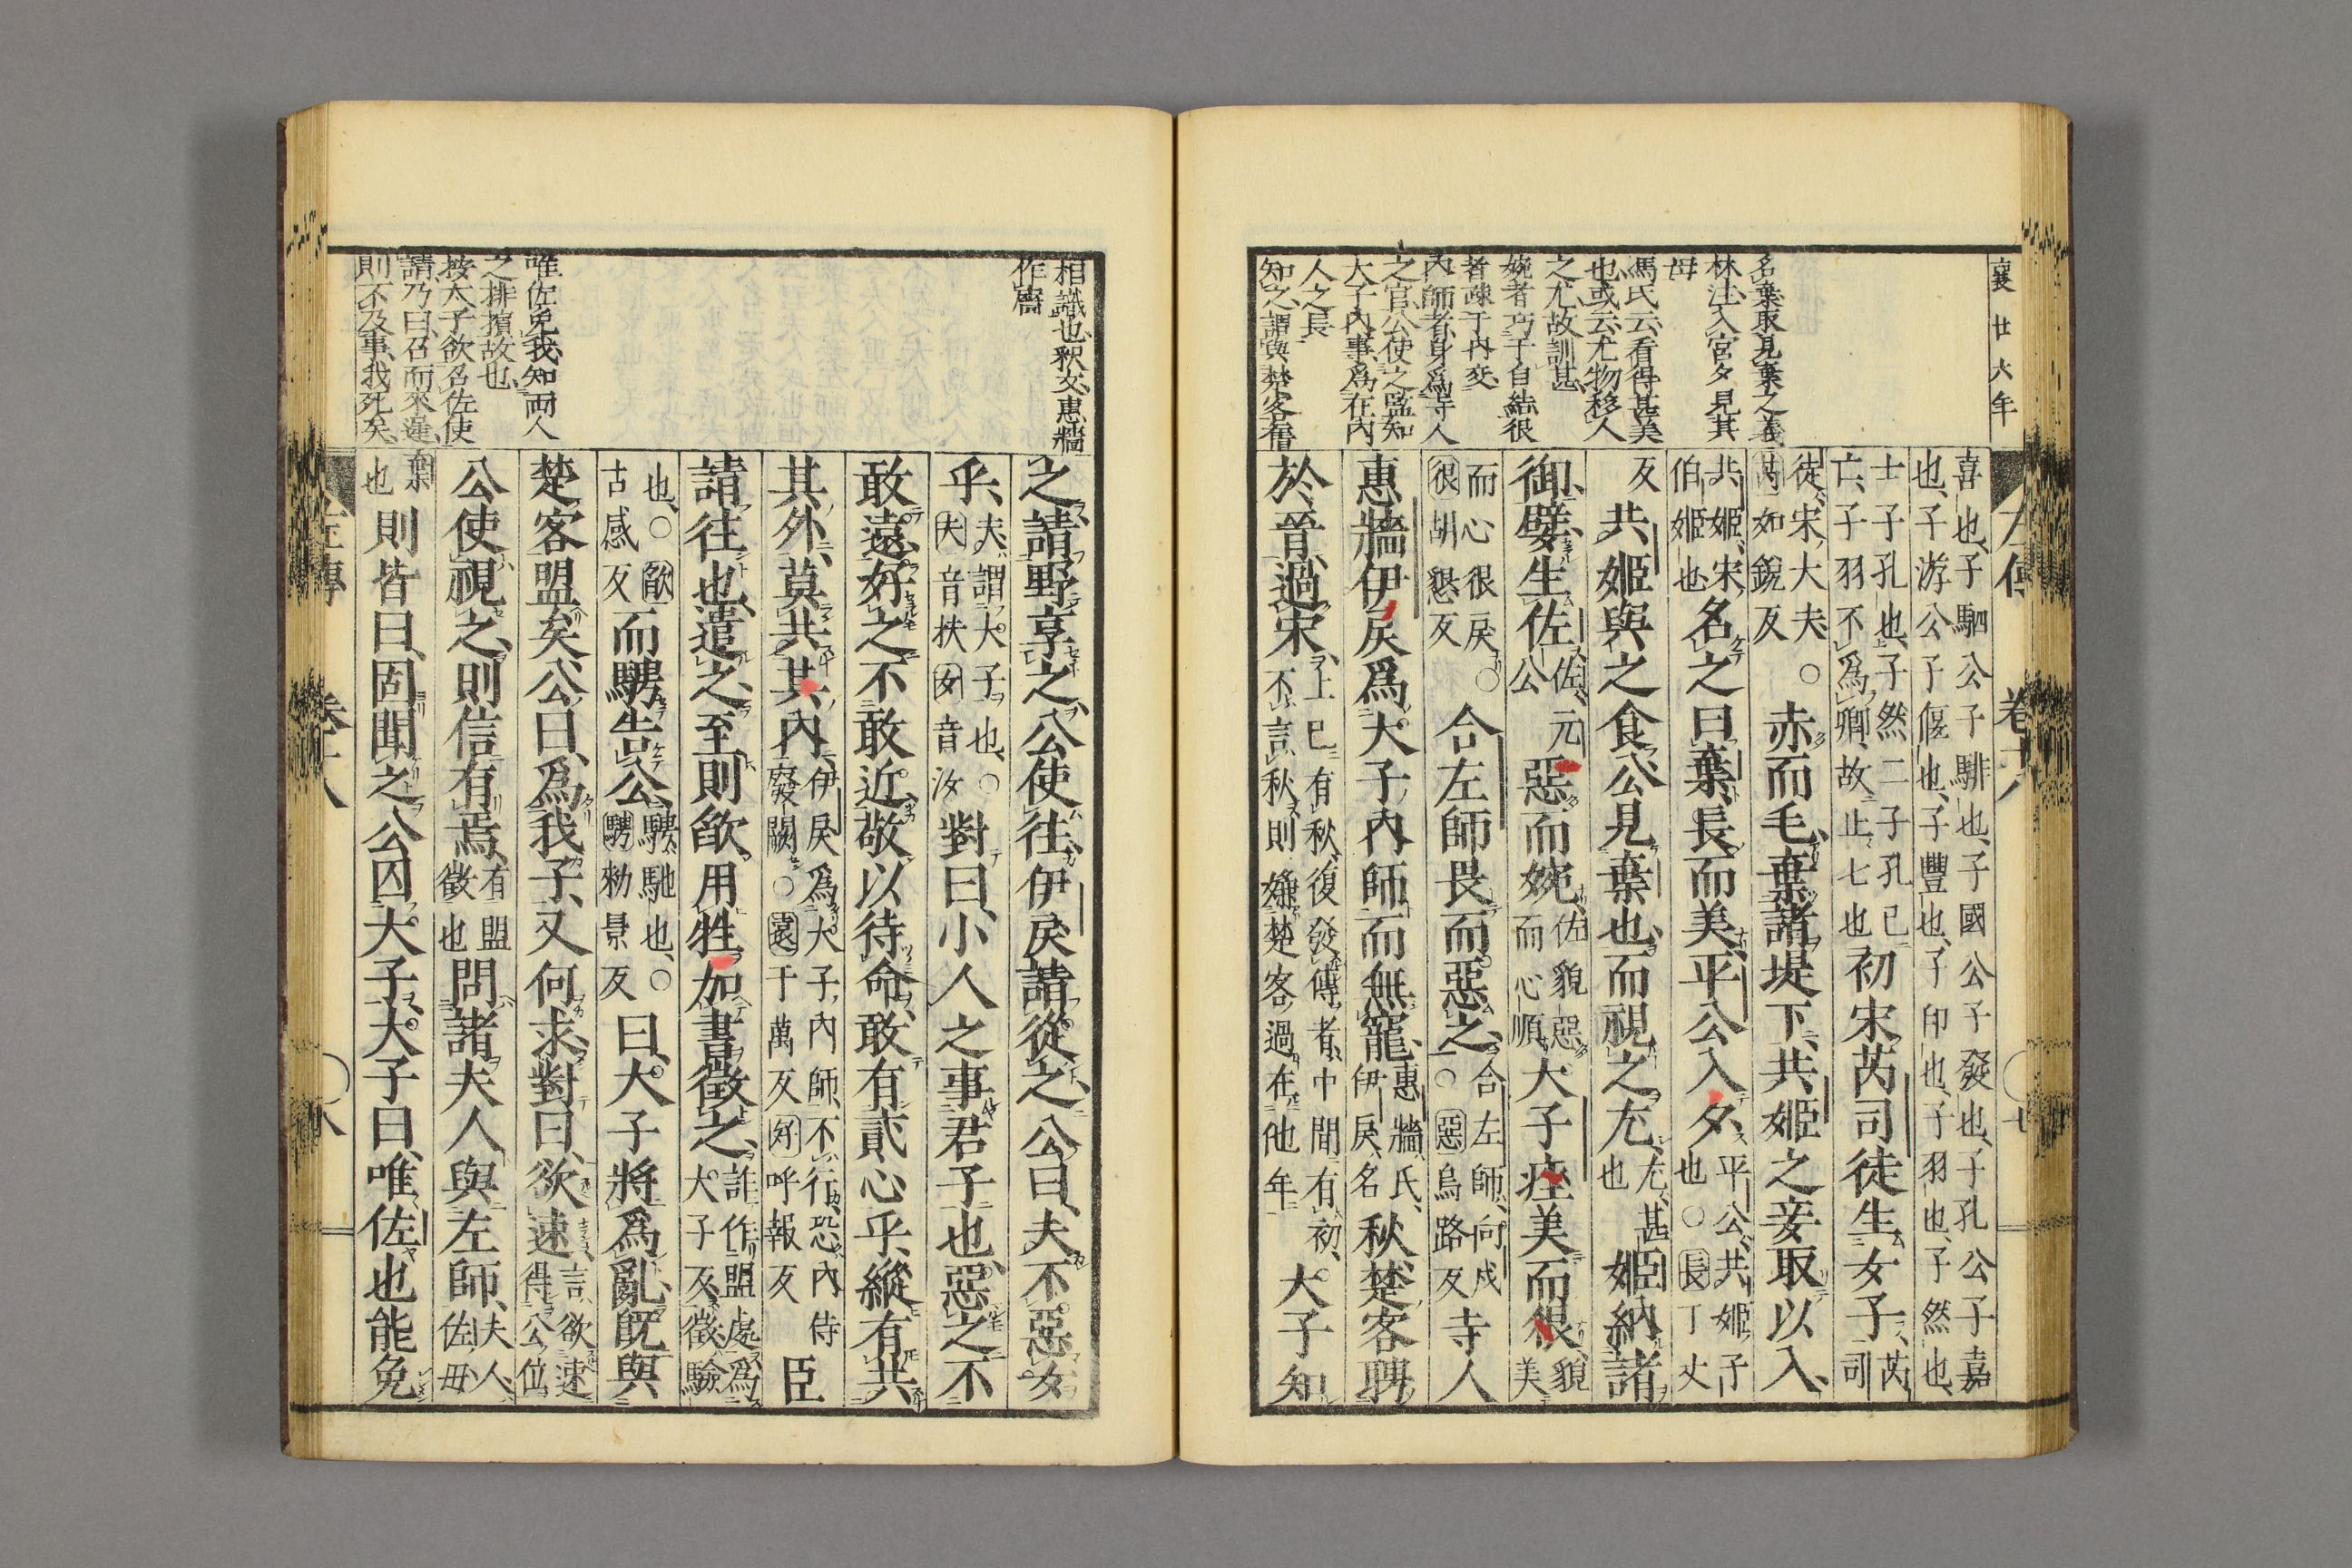 襄廿六年
名棄取見棄之義
林注入宮夕見其
母
馬氏云看得甚美
也或云尤物移人
之尤故訓甚
婉者巧于自結很
者疎于内交
内師者身爲寺人
之官公使之監知
大子内事爲在内
人之長
知之謂與楚客舊
喜也子駟公子騑也子國公子發也子孔公子嘉
也子游公子偃也子豐也子印也子羽也子然也
士子孔也子然二子孔已
亡子羽不爲卿故止七也
初宋芮司徒生女子
芮司
徒宋大夫○
芮如銳反
赤而毛棄諸堤下共姬之妾取以入
共姬宋
伯姬也
名之曰棄長而美平公入夕
平公共姬子
也○長丁丈
反
共姬與之食公見棄也而視之尤
尤甚
也
姬納諸
御嬖生佐
佐元
公
惡而婉
佐貌惡
而心順
大子痤美而很
貌
美
而心很戾○
很胡懇反
合左師畏而惡之
合左師向戌
○惡烏路反
寺人
惠牆伊戾爲大子内師而無寵
惠牆氏
伊戾名
秋楚客聘
於晉過宋
上已有秋復發傳者中間有初
不言秋則嫌楚客過在他年
大子知
相識也釈文惠牆
作嗇
唯佐免我知両人
之排擯故也
按大子欲名佐使
請乃曰召而來遲
則不及事我死矣
之請野享之公使往伊戾請從之公曰夫不惡女
乎
夫謂大子也○
夫音扶女音汝
對曰小人之事君子也惡之不
敢遠好之不敢近敬以待命敢有貳心乎縱有共
其外莫共其内
伊戾爲大子内師不行恐内侍
廢闕○遠于萬反好呼報反
臣
請往也遣之至則欿用牲加書徵之
詐作盟處爲
大子反徵驗
也○欿
古感反
而騁告公
騁馳也○
騁勑景反
曰大子將爲亂既與
楚客盟矣公曰爲我子又何求對曰欲速
言欲速
得公位
公使視之則信有焉
有盟
徵也
問諸夫人與左師
夫人
佐母
棄
也
則皆曰固聞之公囚大子大子曰唯佐也能免